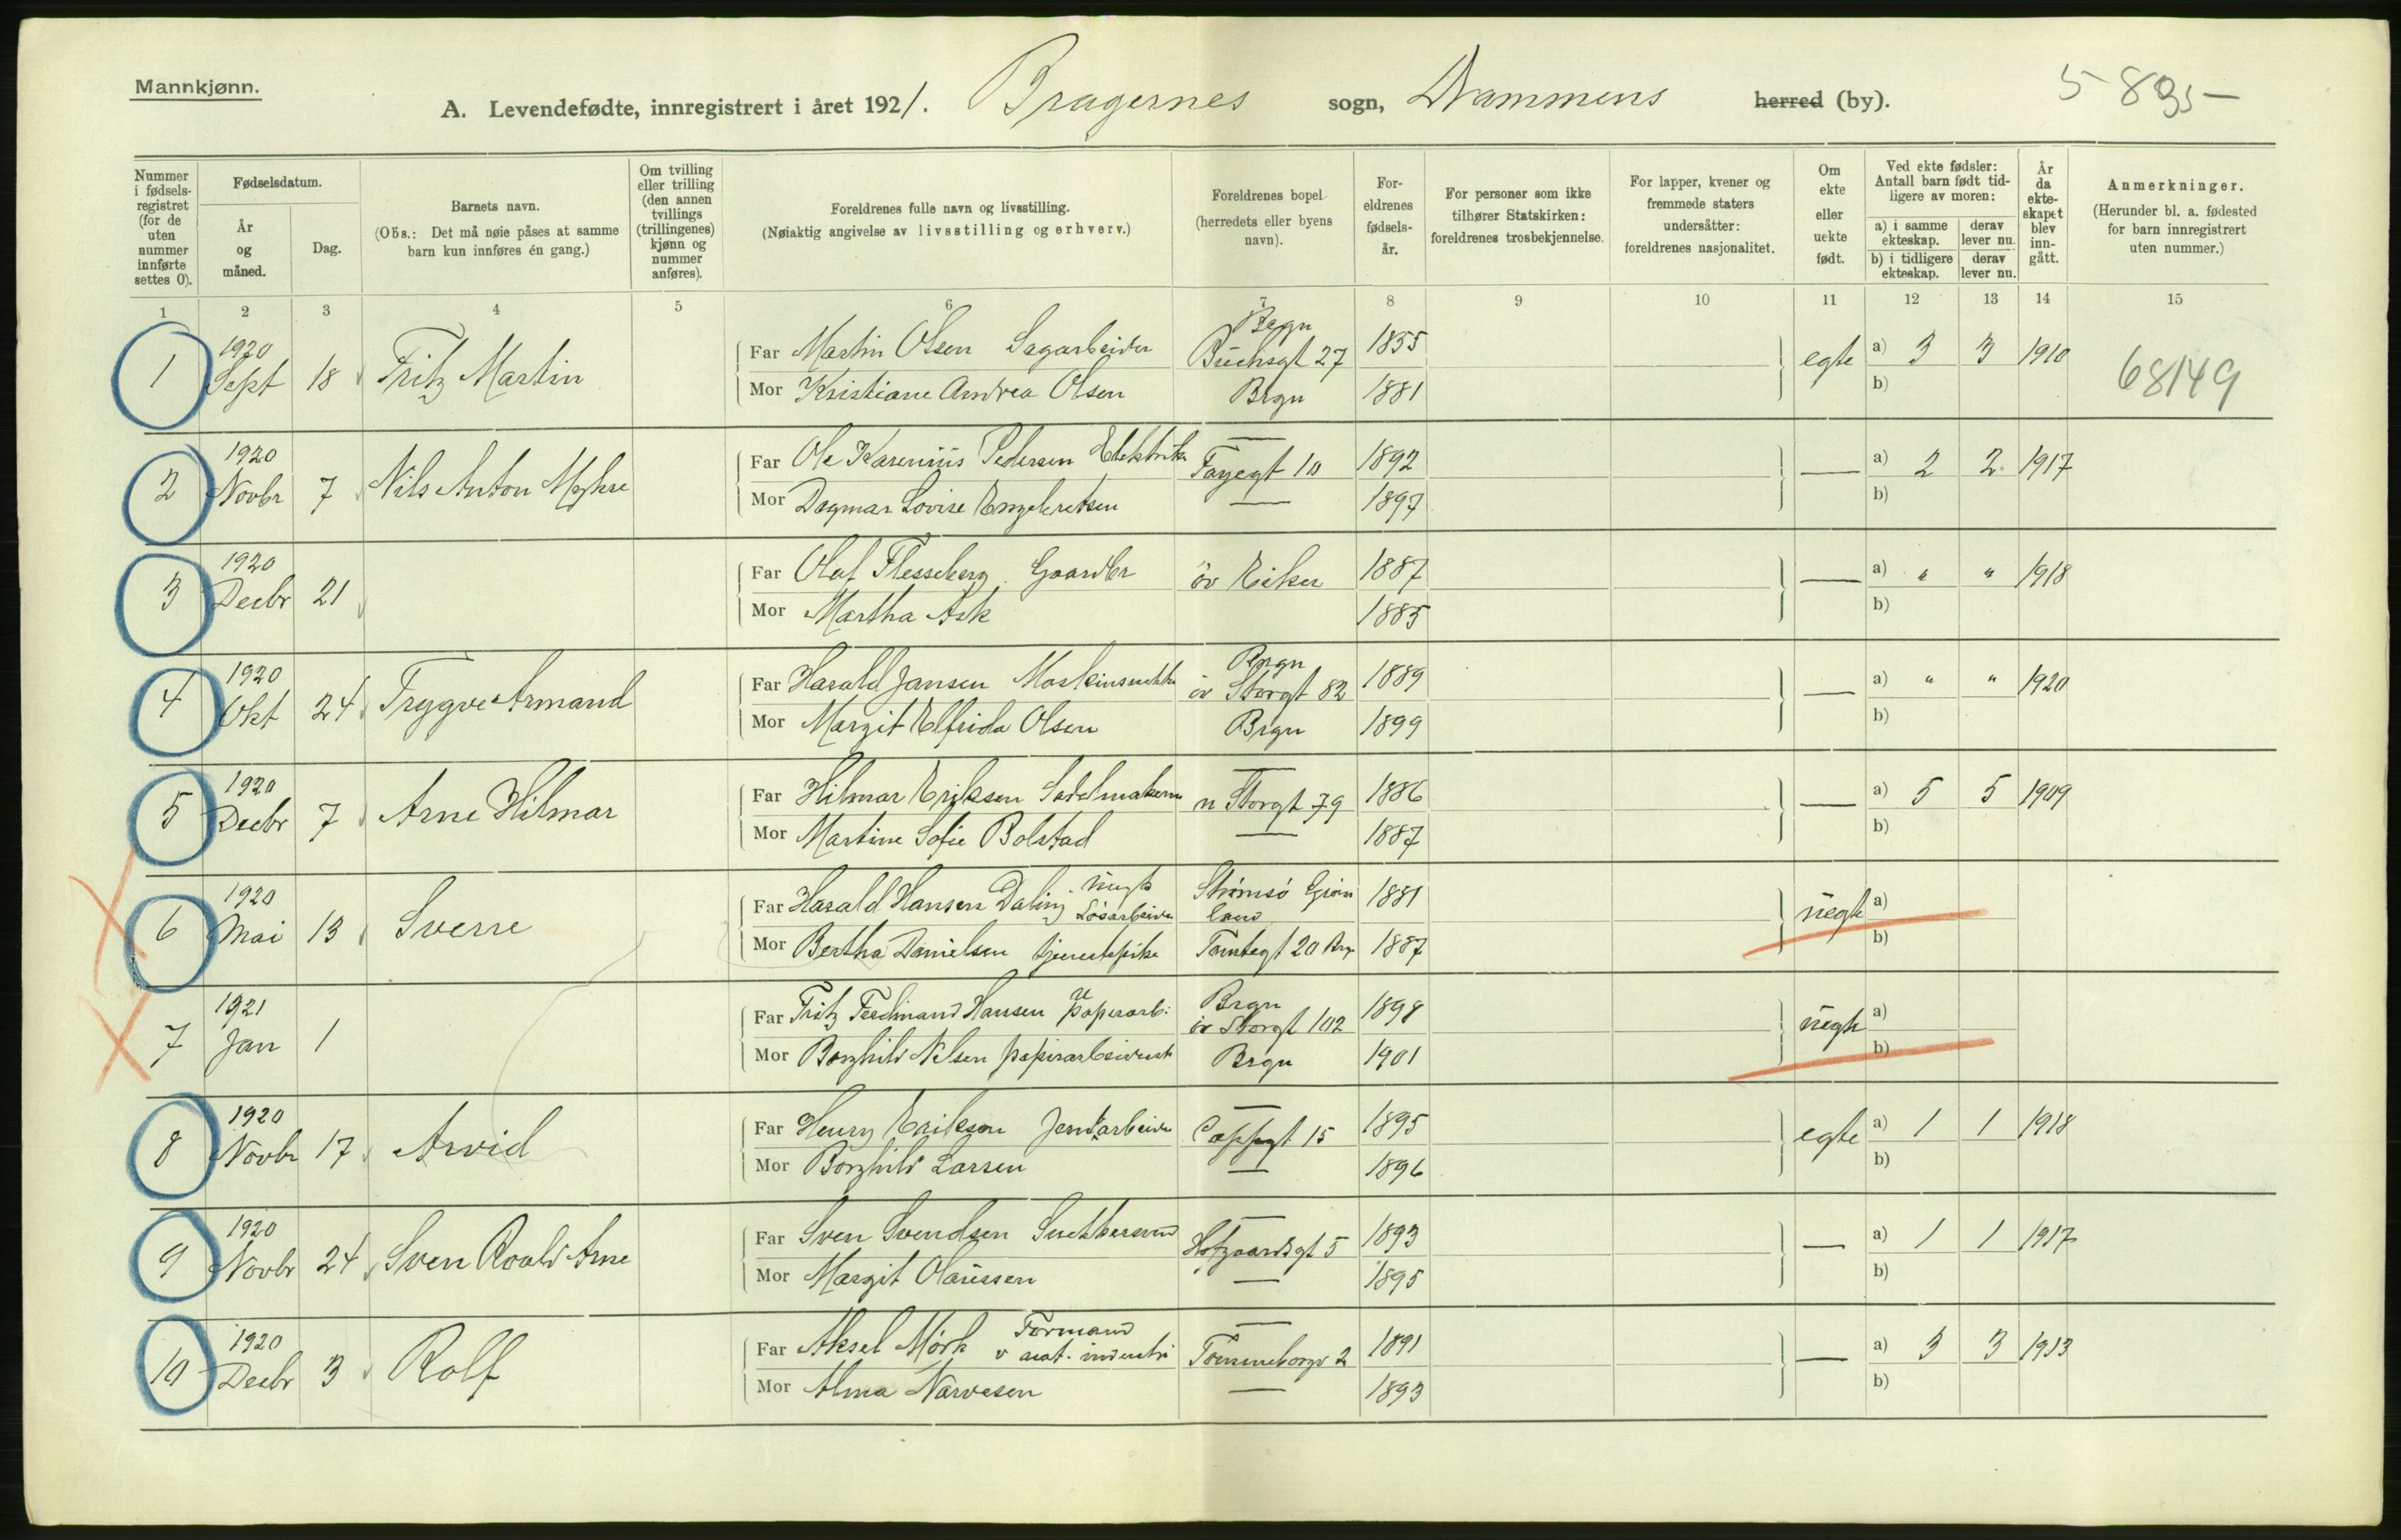 Mannkjønn.
A. Levendefødte, innregistrert i året 1921. Bragernes sogn, Drammens herred (by).
5 895-
Nummer i fødsels-registret (for de uten nummer innførte settes 0).
Fødselsdatum.
År og måned.
Dag.
Barnets navn.
(Obs.: Det må nøie påses at samme barn kun innføres én gang.)
Om tvilling eller trilling (den annen tvillings (trillingenes) kjønn og nummer anføres).
Foreldrenes fulle navn og livsstilling.
(Nøiaktig angivelse av livsstilling og erhverv.)
Foreldrenes bopel (herredets eller byens navn).
For-eldrenes fødsels-år.
For personer som ikke tilhører Statskirken: foreldrenes trosbekjennelse.
For lapper, kvener og fremmede staters undersåtter: foreldrenes nasjonalitet.
Om ekte eller uekte født.
Ved ekte fødsler: Antall barn født tid-ligere av moren:
a) i samme ekteskap.
derav lever nu.
b) i tidligere ekteskap.
derav lever nu.
År da ekte-skapet blev inn-gått.
Anmerkninger.
(Herunder bl. a. fødested for barn innregistrert uten nummer.)
1 2 3 4 5 6 7 8 9 10 11 12 13 14 15
1 1920 Sept 18 Fritz Martin
Far Martin Olsen Sagarbeider Brgn Buchsgt 27 1855 egte a) 3 3 1910 68149
Mor Kristiane Andrea Olsen Brgn 1881 b)
2 1920 Novbr 7 Nils Anton
Far Ole Karenius Pedersen Elektrik Fayegt 10 1892 — a) 2 2 1917
Mor Dagmar Lovise Engebretsen — 1897 b)
3 1920 Decbr 21
Far Olaf Flesseberg Gaardbr öv Eiker 1887 — a) " " 1918
Mor Martha Ask 1885 b)
4 1920 Okt 24 Trygve Armand
Far Harald Jansen Maskinsnekker Brgn öv Storgt 82 1889 — a) " " 1920
Mor Margit Elfrida Olsen Brgn 1899 b)
5 1920 Decbr 7 Arne Hilmar
Far Hilmar Eriksen Sadelmakersv — n Storgt 79 1886 — a) 5 5 1909
Mor Martine Sofie Bolstad — 1887 b)
6 1920 Mai 13 Sverre
Far Harald Hansen Daling ungk Løsarbeider Strømsö Grønland 1881 uegte a)
Mor Bertha Danielsen tjenestepike Tomtegt 20 Brgn 1887 b)
7 1921 Jan 1
Far Fritz Ferdinand Hansen papirarb: Brgn öv Storgt 102 1898 uegte a)
Mor Borghild Nilsen papirarbeiderske Brgn 1901 b)
8 1920 Novbr 17 Arvid
Far Henry Eriksen Jernarbeider — Cappgt 15 1895 egte a) 1 1 1918
Mor Borghild Larsen — 1896 b)
9 1920 Novbr 24 Sven Roald Arne
Far Sven Svendsen Snekkersvend — Hofgaardsgt 5 1893 — a) 1 1 1917
Mor Margit Olaussen — 1895 b)
10 1920 Decbr 3 Rolf
Far Aksel Mörk Formand v industri — Tømmeborgv 2 1891 — a) 3 3 1913
Mor Alma Narvesen — 1893 b)